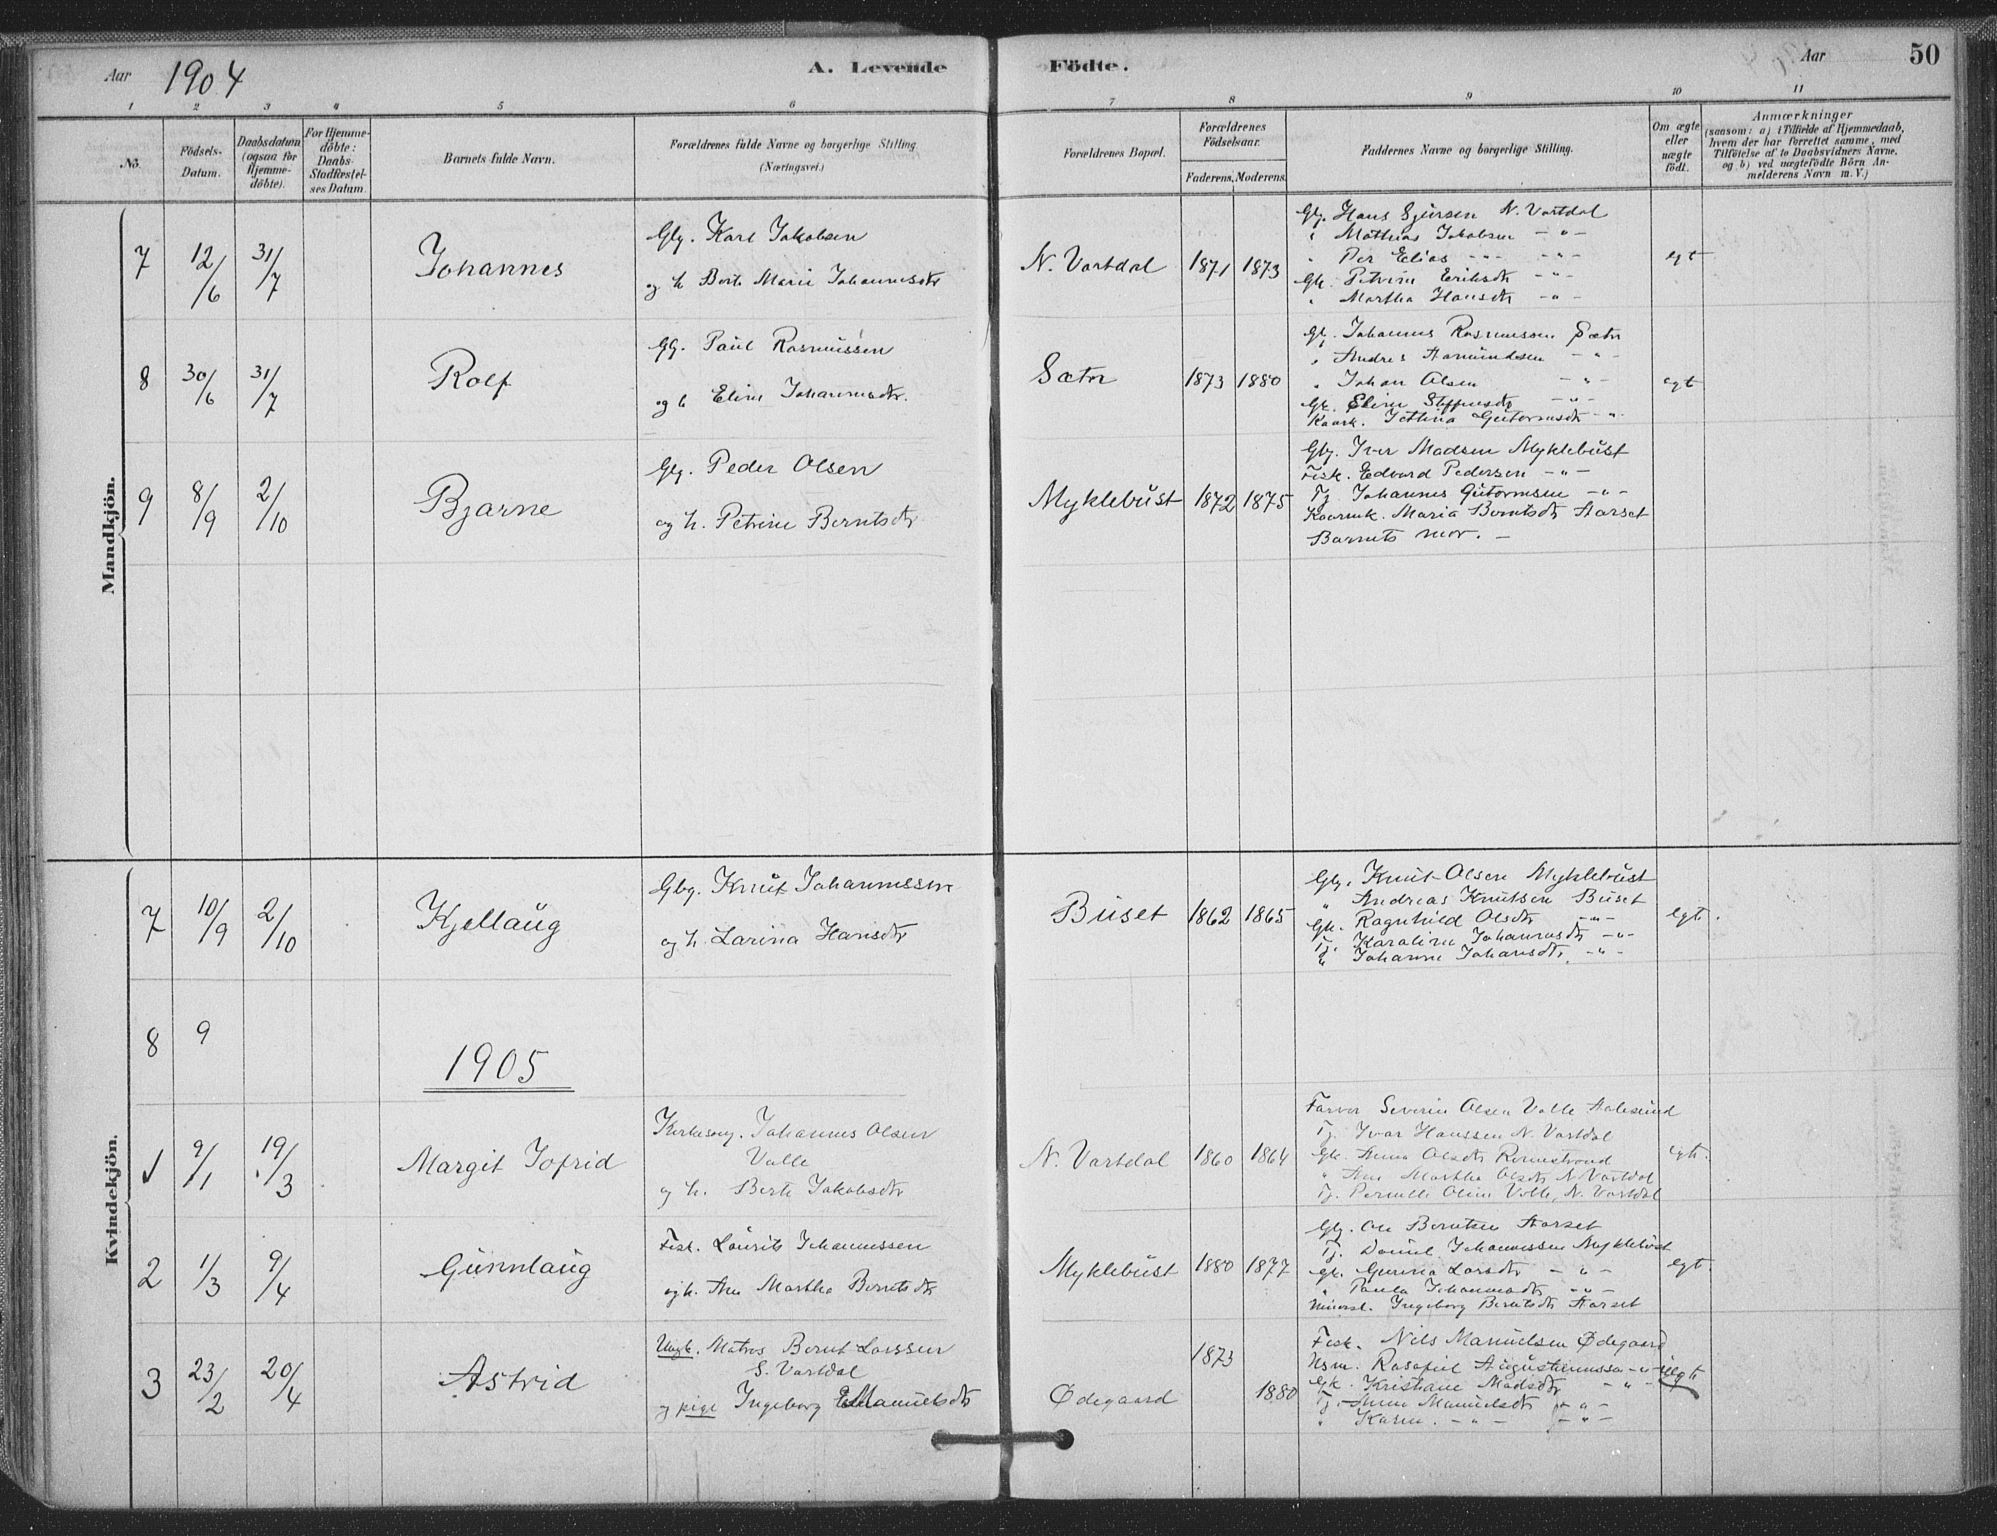 Aar 1904 A. Levende Födte. Aar 50
1 2 3 4 5 6 7 8 9 10 11
No. Födsels-Datum. Daabsdatum (ogsaa for Hjemme-döbte). For Hjemme-döbte: Daabs-Stadfæstel-ses Datum. Barnets fulde Navn. Forældrenes fulde Navne og borgerlige Stilling. (Næringsvei.) Forældrenes Bopæl. Forældrenes Födselsaar. Faderens. Moderens. Faddernes Navne og borgerlige Stilling. Om ægte eller uægte födt. Anmærkninger (saasom: a) i Tilfælde af Hjemmedaab, hvem der har forrettet samme, med Tilföielse af to Daabsvidners Navne, og b) ved uægtefödte Börn An-melderens Navn m. V.)
Mandkjön.
7 12/6 31/7 Johannes
Gbg. Karl Jakobsen
og h Berte Marie Johannesdtr
N. Vartdal 1871 1873
Gbg. Hans Sjursen N. Vartdal
" Mathias Jakobsen - " -
" Per Elias - " - - " -
Gk. Petrine Eriksdtr - " -
" Martha Hansdtr - " -
egt
8 30/6 31/7 Rolf
Gbg. Paul Rasmussen
og h Eline Johannesdtr.
Sætre 1873 1880
Gbg. Johannes Rasmussen Sætre
" Andres Aamundsen - " -
" Johan Olsen - " -
Gk. Eline Steffensdtr - " -
Kaark. Jettina Guttormsdtr - " -
egt
9 8/9 2/10 Bjarne
Gbg. Peder Olsen
og h. Petrine Berntsdtr
Myklebust 1872 1875
Gbg. Iver Madsen Myklebust
Fisk. Edvard Pedersen - " -
Tj. Johannes Guttormsen - " -
Kaarmk. Maria Berntsdtr Aarset
Barnets mor. -
Kvindekjön.
7 10/9 2/10 Kjellaug
Gbg. Knut Johannessen
og h. Larina Hansdtr
Buset 1862 1865
Gbg. Knut Olsen Myklebust
" Andreas Knutsen Buset
Gk. Ragnhild Olsdtr - " -
Tj. Karoline Johannesdtr - " -
" Johanne Johansdtr. - " -
egt.
8 9
1905
1 9/1 19/3 Margit Jofrid
Kirkesang. Johannes Olsen
Valle
og h. Berte Jakobsdtr
N. Vartdal 1860 1864
Farver Severin Olsen Valle Aalesund
Tj. Ivar Hanssen N. Vartdal
Gk. Anna Olsdtr
" Ane Martha Olsdtr N. Vartdal
Tj. Pernille Oline Valle, N. Vartdal
egt.
2 1/3 9/4 Gunnlaug
Fisk. Laurits Johannessen
og h. Ane Martha Berntsdtr
Myklebust 1880 1877
Gbg. Ole Berntsen Aarset
Tj. Daniel Johannessen Myklebust
Gk. Gurina Larsdtr - " -
" Paula Johannesdtr - " -
Ingeborg Berntsdtr Aarset
egt.
3 23/2 20/4 Astrid
Ungk. Matros Bernt Larssen
S. Vartdal
og pige Ingeborg Manuelsdtr
Ødegaard 1873 1880
Fisk. Nils Manuelsen Ødegaard
Hsm. Augustinussen - " -
Gk. Kristiane Madsdtr - " -
Tj. Anne Manuelsdtr - " -
" Karen. - " - - " -
uegte